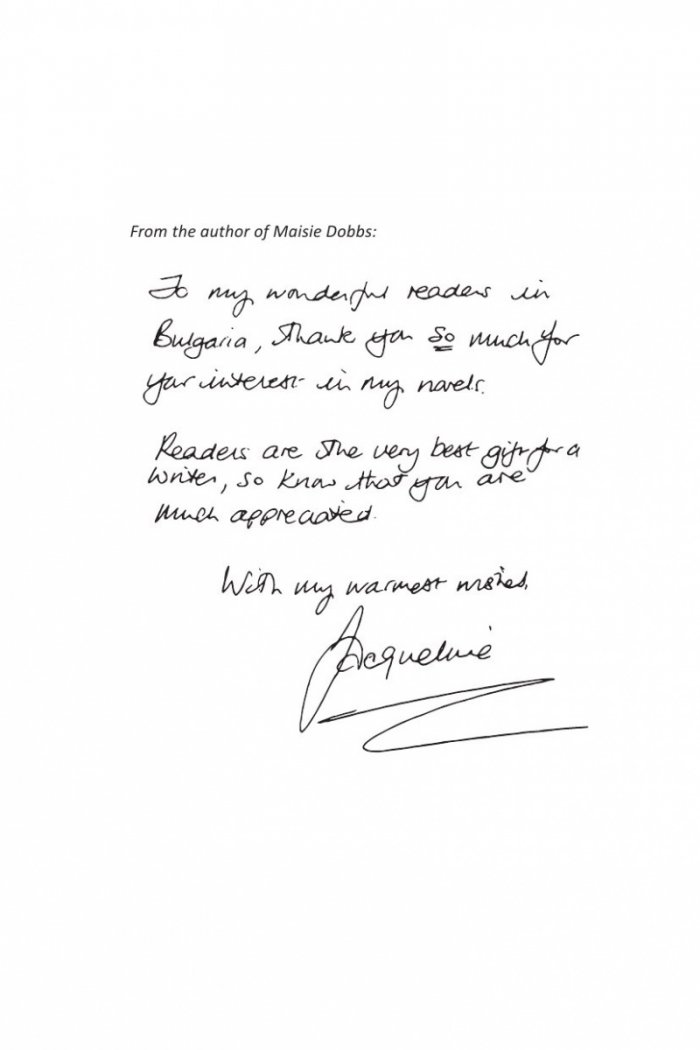 From the author of Maisie Dobbs:
To my wonderful readers in
Bulgaria, thank you so much for
your interest in my novels.
Readers are the very best gift for a
writer, so know that you are
much appreciated.
With my warmest wishes,
Jacqueline